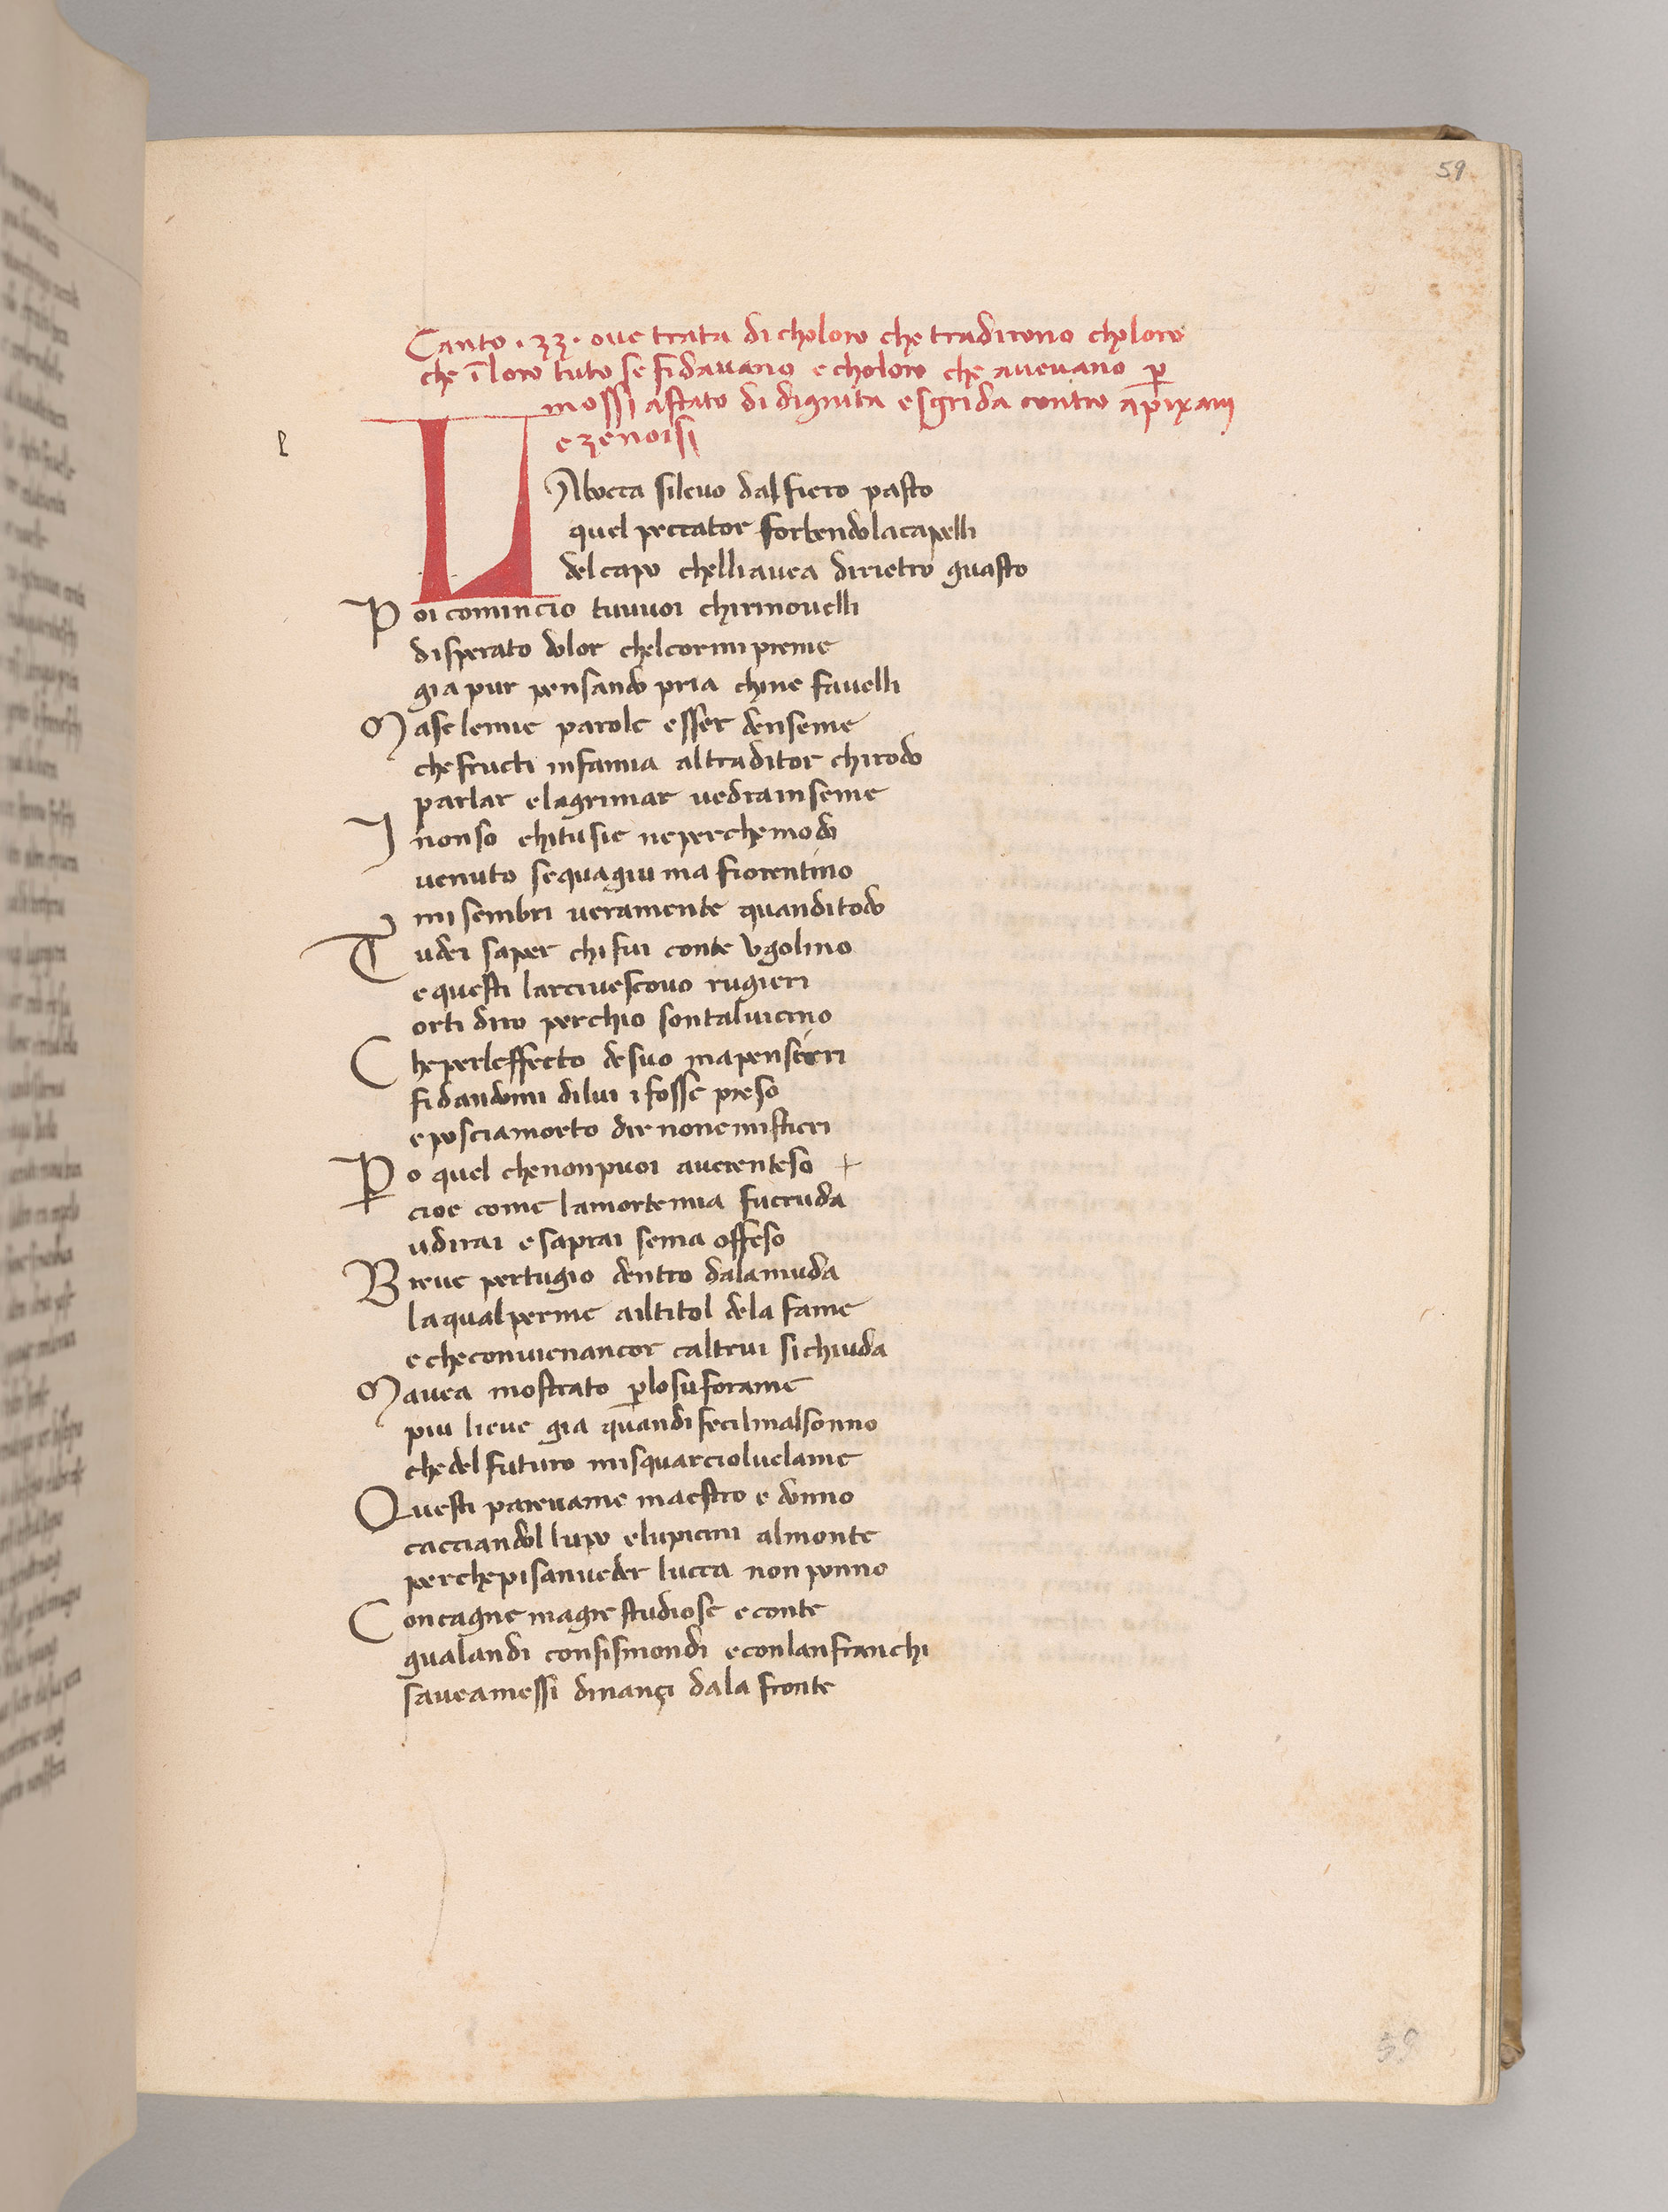 59
Canto · 33 · ove trata di choloro che tradirono choloro
che ī loro tuto se fidavano e choloro che avevano ꝑ
mossi astato di dignita e sgrida contro a pixani
e zenoisi
l
LA bocca silevo dal fiero pasto
quel peccator forbendolacapelli
del capo chelliavea dirietro guasto
Poi comincio tuvuoi chirinovelli
disperato dolor chelcormi preme
gia pur pensando pria chine favelli
Maselemie parole esser denseme
chefructi infamia altraditor chirodo
parlar elagrimar vedrainseme
I nonso chitusie neperchemodo
venuto sequagiu ma fiorentino
mi sembri veramente quanditodo
Tudei saper chifui conte Vgolino
equesti larcivescovo rugieri
orti diro perchio sontalvicino
Cheperleffecto desuo mapensieri
fidandomi dilui i fosse preso
eposciamorto dir nonemistieri
Po quel chenonpuoi averenteso +
cioe come lamortemia fucruda
udirai esaprai sema offeso
Breve pertugio dentro dalamuda
laqualperme ailtitol dela fame
echeconvienancor caltrui sichiuda
Mavea mostrato ꝑlosuforame
piu lieve gia quandifecilmalsonno
chedelfuturo misquarciolvelame
Questi parevame maestro e donno
cacciandol lupo elupicini almonte
perchepisanveder lucca non ponno
Concagne magre studiose econte
gualandi consismondi econlanfranchi
saveamessi dinançi dala fronte
59